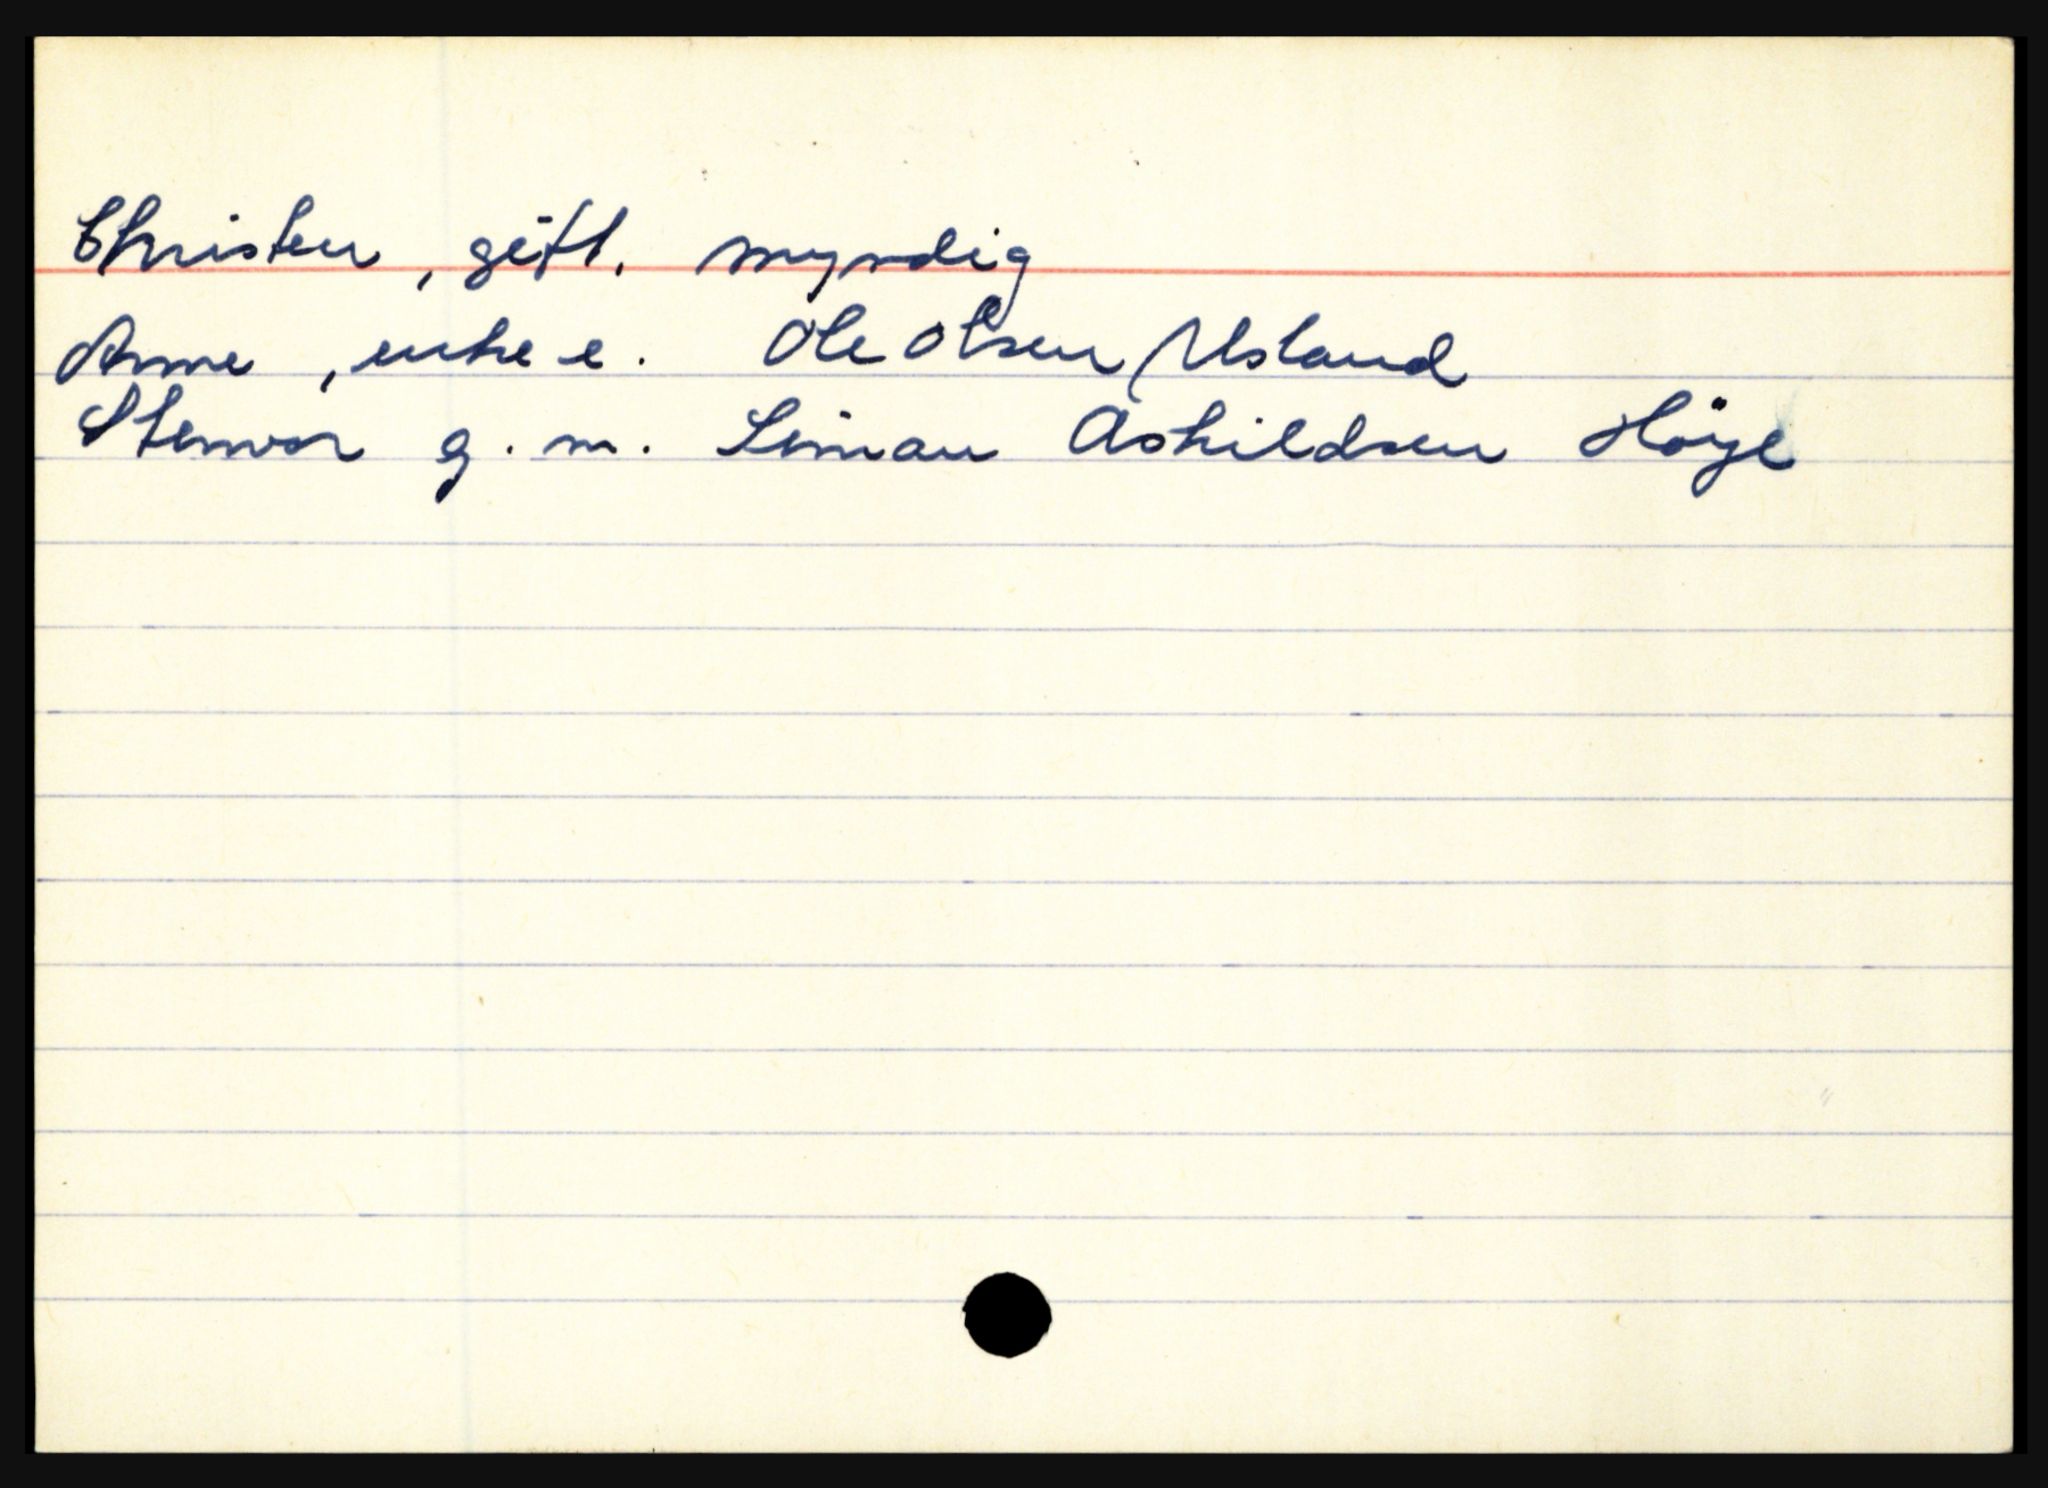 Christen, gift, myndig
Anne, enke e. Ole Olsen Usland
Stenvor g. m. Simon Askildsen Höye